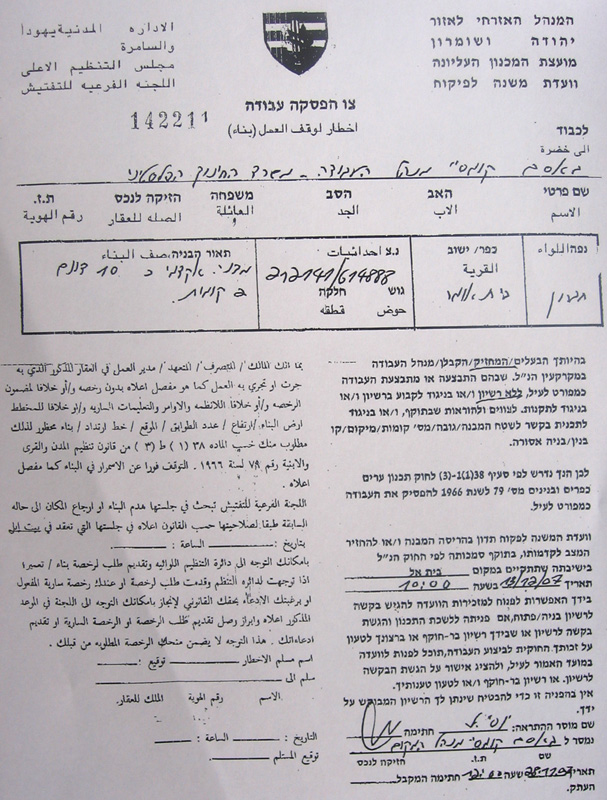 המנהל האזרחי לאזור
יהודה ושומרון
מועצת המכנון העליונה
וועדת משנה לפיקוח
الاداره المدنية يهودا
والسامرة
مجلس التنظيم الاعلى
اللجنه الفرعيه للتفتيش
142211
צו הפסקה עבודה
اخطار لوقف العمل (بناء)
לכבוד
الى حضرة
מנהל העבודה - משרד החינוך הפלסטיני
שם פרטי האב הסב משפחה הזיקה לנכס ת.ז.
الاسم الاب الجد العائلة الصله للعقار رقم الهوية
נפה/הלווה
כפר/ ישוב
القرية
בית אומר
נ.צ احداثيات
גוש חלקה
حوض قطقه
תאור הבניה, صف البناء
כ 10 דונם
קומות.
בהיותך הבעלים/המחזיק/הקבלן/מנהל העבודה
במקרקעין הנ״ל. שבהם התבצעה או מתבצעת העבודה
כמפורט לעיל, ללא רשיון ו/או בניגוד לקבוע ברשיון ו/או
בניגוד לתקנות. לצווים ולהוראות שבתוקף, ו/או בניגוד
לתכנית בקשר לשטח המבנה/גובה/מס׳ קומות/מיקום/קו
בנין/בניה אסורה.
לכן הנך נדרש לפי סעיף 38(1)-(3) לחוק תכנון ערים
כפרים ובנינים מס׳ 79 לשנת 1966 להפסיק את העבודה
כמפורט לעיל.
וועדת המשנה לפקוח תדון בהריסת המבנה ו/או להחזיר
המצב לקדמותו, בתוקף סמכותה לפי החוק הנ״ל
בישיבתה שתתקיים במקום בית אל
תאריך 13/12/07 בשעה 10:00
בידך האפשרות לפנות למזכירות הוועדה להגיש בקשה
לרשיון בניה/פתוח, אם פניתה ללשכת התכנון והגשת
בקשה לרשיון או שבידך רשיון בר-תוקף או ברצונך לטעון
על זכותך החוקית לביצוע העבודה, תוכל לפנות לוועדה
במועד האמור לעיל, ולהציג אישור על הגשת הבקשה
לרשיון. או רשיון בר-תוקף ו/או לטעון טענותיך.
אין בהפניה זו כדי להבטיח שינתן לך הרשיון המבוקש על
ידך.
שם מוסר ההתראה: יוסי ל. חתימה
נמסר ל
שם ת.ז. חזיקה לנכס
תאריך 28.11.07 שעה חתימה המקבל
העתק.
بما انك المالك/ المتصرف/ المتعهد/ مدير العمل في العقار المذكور الذي به
جرت او تجري به العمل كما هو مفصل اعلاه بدون رخصه و/أو خلافا لمضمون
الرخصه و/أو خلافا للانظمه والاوامر والتعليمات الساريه و/أو خلافا للمخطط
ارض البناء/ارتفاع/ عدد الطوابق/ الموقع/ خط ارتداد/ بناء محظور لذلك
مطلوب منك حسب الماده ٣٨ (١) ط (٣) من قانون تنظيم المدن والقرى
والابنية رقم ٧٩ لسنة ١٩٦٦. التوقف فورا عن الاستمرار في البناء كما مفصل
اعلاه.
اللجنة الفرعية للتفتيش تبحث في جلستها هدم البناء او ارجاع المكان الى حاله
السابقة طبقا لصلاحيتها حسب القانون اعلاه في جلستها التي تعقد في بيت ايل
بتاريخ: الساعة:
بامكانك التوجه الى دائرة التنظيم اللوائيه وتقديم طلب لرخصة بناء/ تعمير؛
اذا توجهت لدائره التنظم وقدمت طلب لرخصة او عندك رخصة سارية المفعول
او برغبتك الادعاء بحقك القانوني لإنجاز بامكانك التوجه الى اللجنة في الموعد
المذكور اعلاه وابراز وصل تقديم طلب الرخصة او الرخصة السارية او تقديم
ادعاءاتك. هذا التوجه لا يضمن منحك الرخصة المطلوبه من قبلك.
اسم مسلم الاخطار توقيع:
سلم الى
الاسم رقم الهوية الملك للعقار.
التاريخ: الساعة:
توقيع المستلم